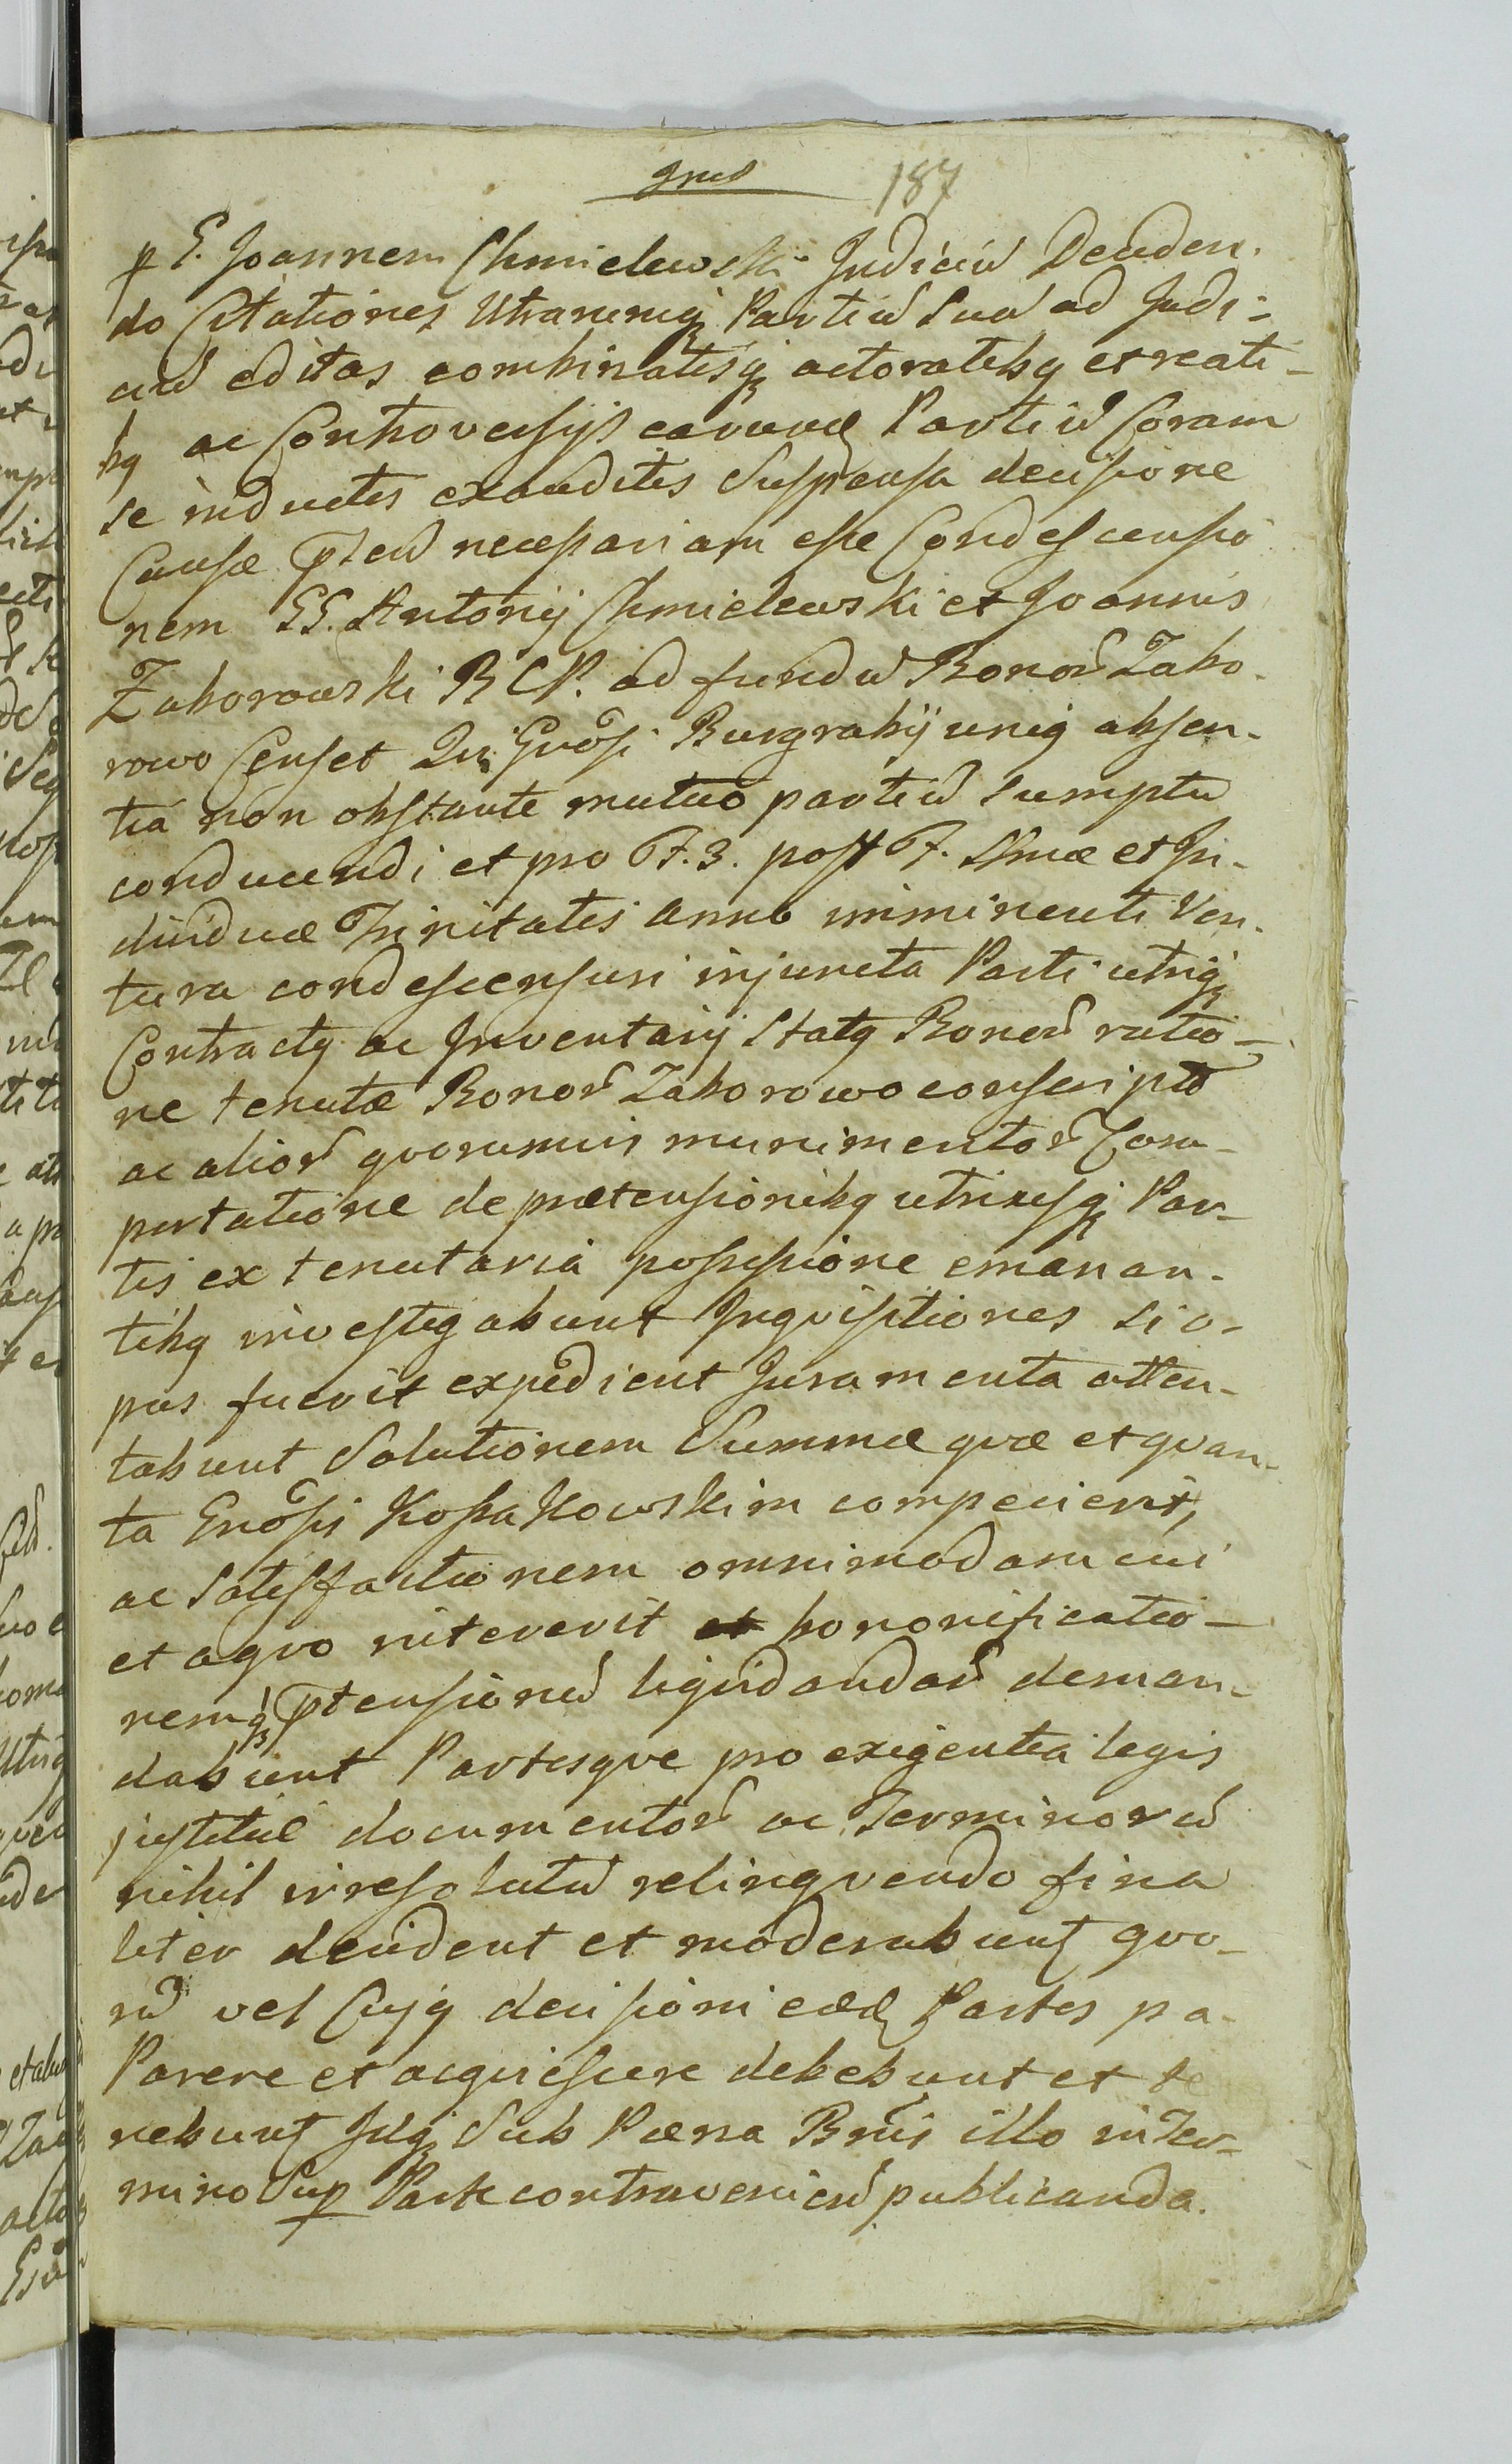 187
p G. Joannem Chmielewski Judiciū Deciden-
do Citationes Utrarumq₃ Partiū Suū ad Judi-
ciū editas combinatisq₃ actoratibq et reati-
bq ac Controversijs earund Partiū Coram
se inductis exauditis Suspensa decisione
Causæ ptēū necessariam esse Condescensio
nem GG. Antonij Chmielewski et Joannis
Zaborowski B C P. ad fundū Bonor̄ Zabo-
rowo Censet Qui Gnōsi Burgrabij uniq absen-
tia non obstante mutuo partiū sumptu
conducendi et pro F. 3. post F. SSmæ et In-
dividuæ Trinitatis anno imminenti Ven-
tura condescensuri injuncta Parti utriq₃
Contractq ac Inventarij Statq Bonor̄ ratio-
ne tenutæ Bonor̄ Zaborowo conscripto
ac alior̄ quorumvis munimentor̄ Com-
portatione de prætensionibq utriusq₃ Par-
tis ex tenutaria possessione emanan-
tibq investigabunt Inquisitiones si o-
pus fuerit expedient Juramenta atten-
tabunt Solutionem Summæ quæ et quan-
ta Gnōsis Kossakowskim compecierit,
ac Satisfactionem omnimodam cui
et a quo nitevevit bonorificatio-
nemq₃ ptensionū liquidandar̄ deman-
dabunt Partesque pro exigentia legis
justitiæ documentor̄ ac Terminorū
nihil irresolutū relinquendo fina
liter decident et moderabunt quo-
rū vel Cujq decisioni eæd Partes pa-
Parere et acquiescere debebunt et te
nebunt Idq₃ Sub Pæna Bnis illo in Ter-
mino Sup Parte contravenien publicanda.